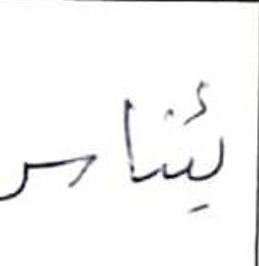 يئناس